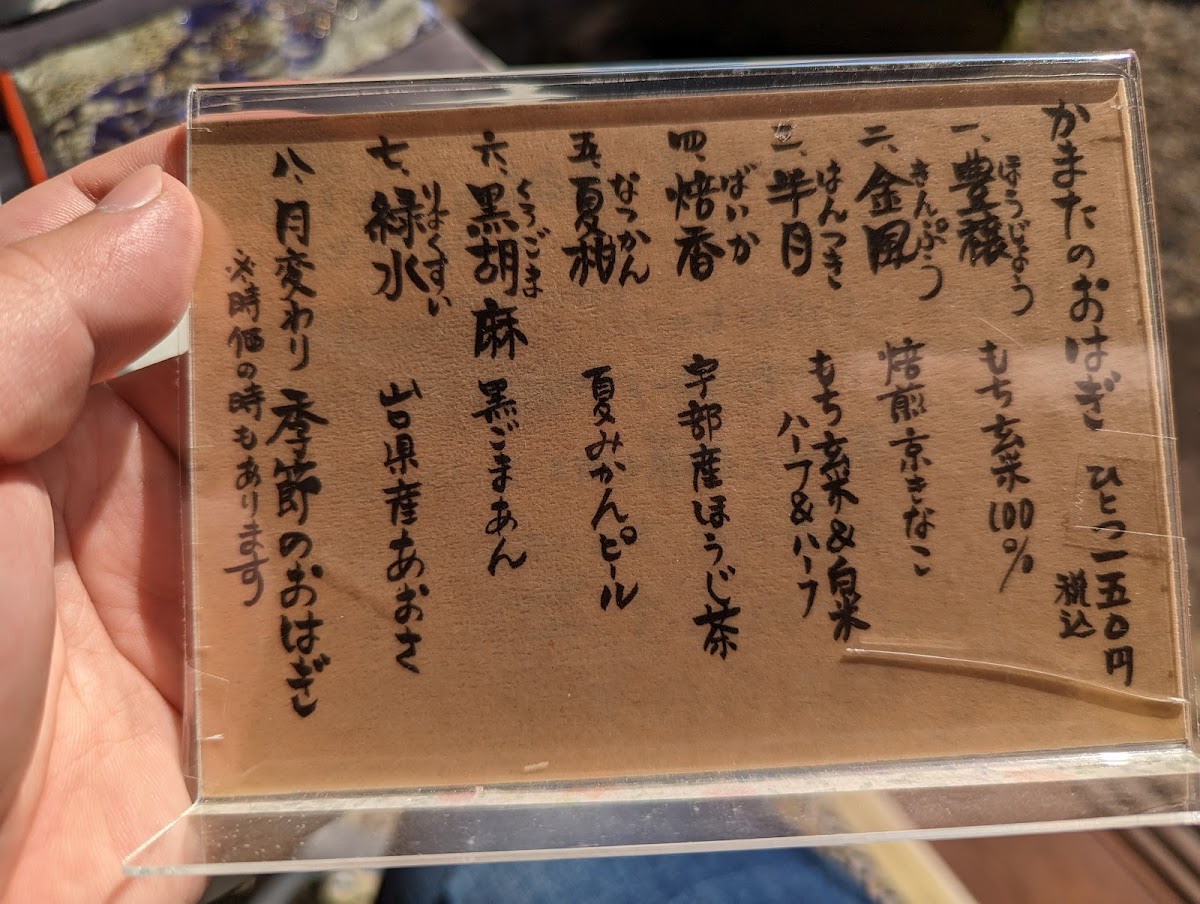 かまたのおはぎ ひとつ一五〇円
税込
ほうじょう
一、豊穣 もち玄米100%
きんぷう
二、金風 焙煎京きなこ
はんつき
三、半月 もち玄米&白米
ハーフ&ハーフ
ばいか
四、焙香 宇部産ほうじ茶
なつかん
五、夏柑 夏みかんピール
くろごま
六、黒胡麻 黒ごまあん
りょくすい
七、緑水 山口県産あおさ
八、月変わり 季節のおはぎ
※時価の時もあります